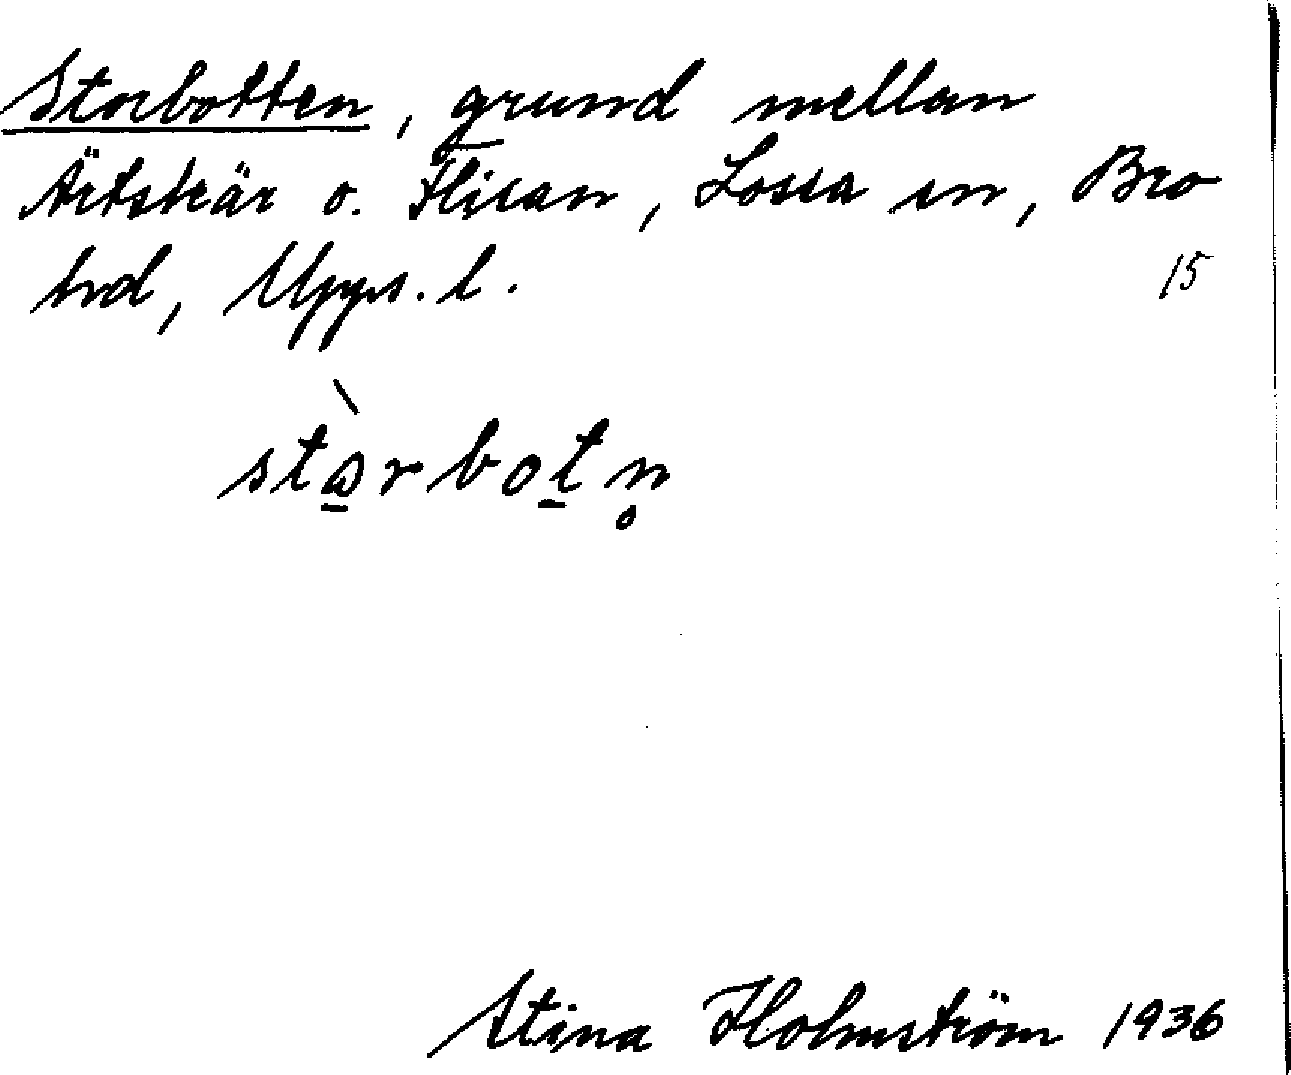 Storbotten, grund mellan
Ärtskär o. Flisan, Lossa sn, Bro
hrd, Upps. l. 15
stɷ̀rbotn̥
Stina Holmström 1936